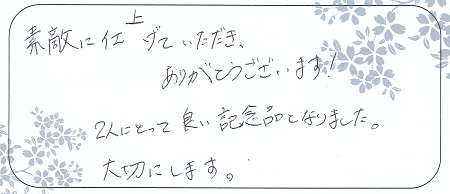 素敵に仕上げていただき、
ありがとうございます!
2人にとって良い記念品となりました。
大切にします。